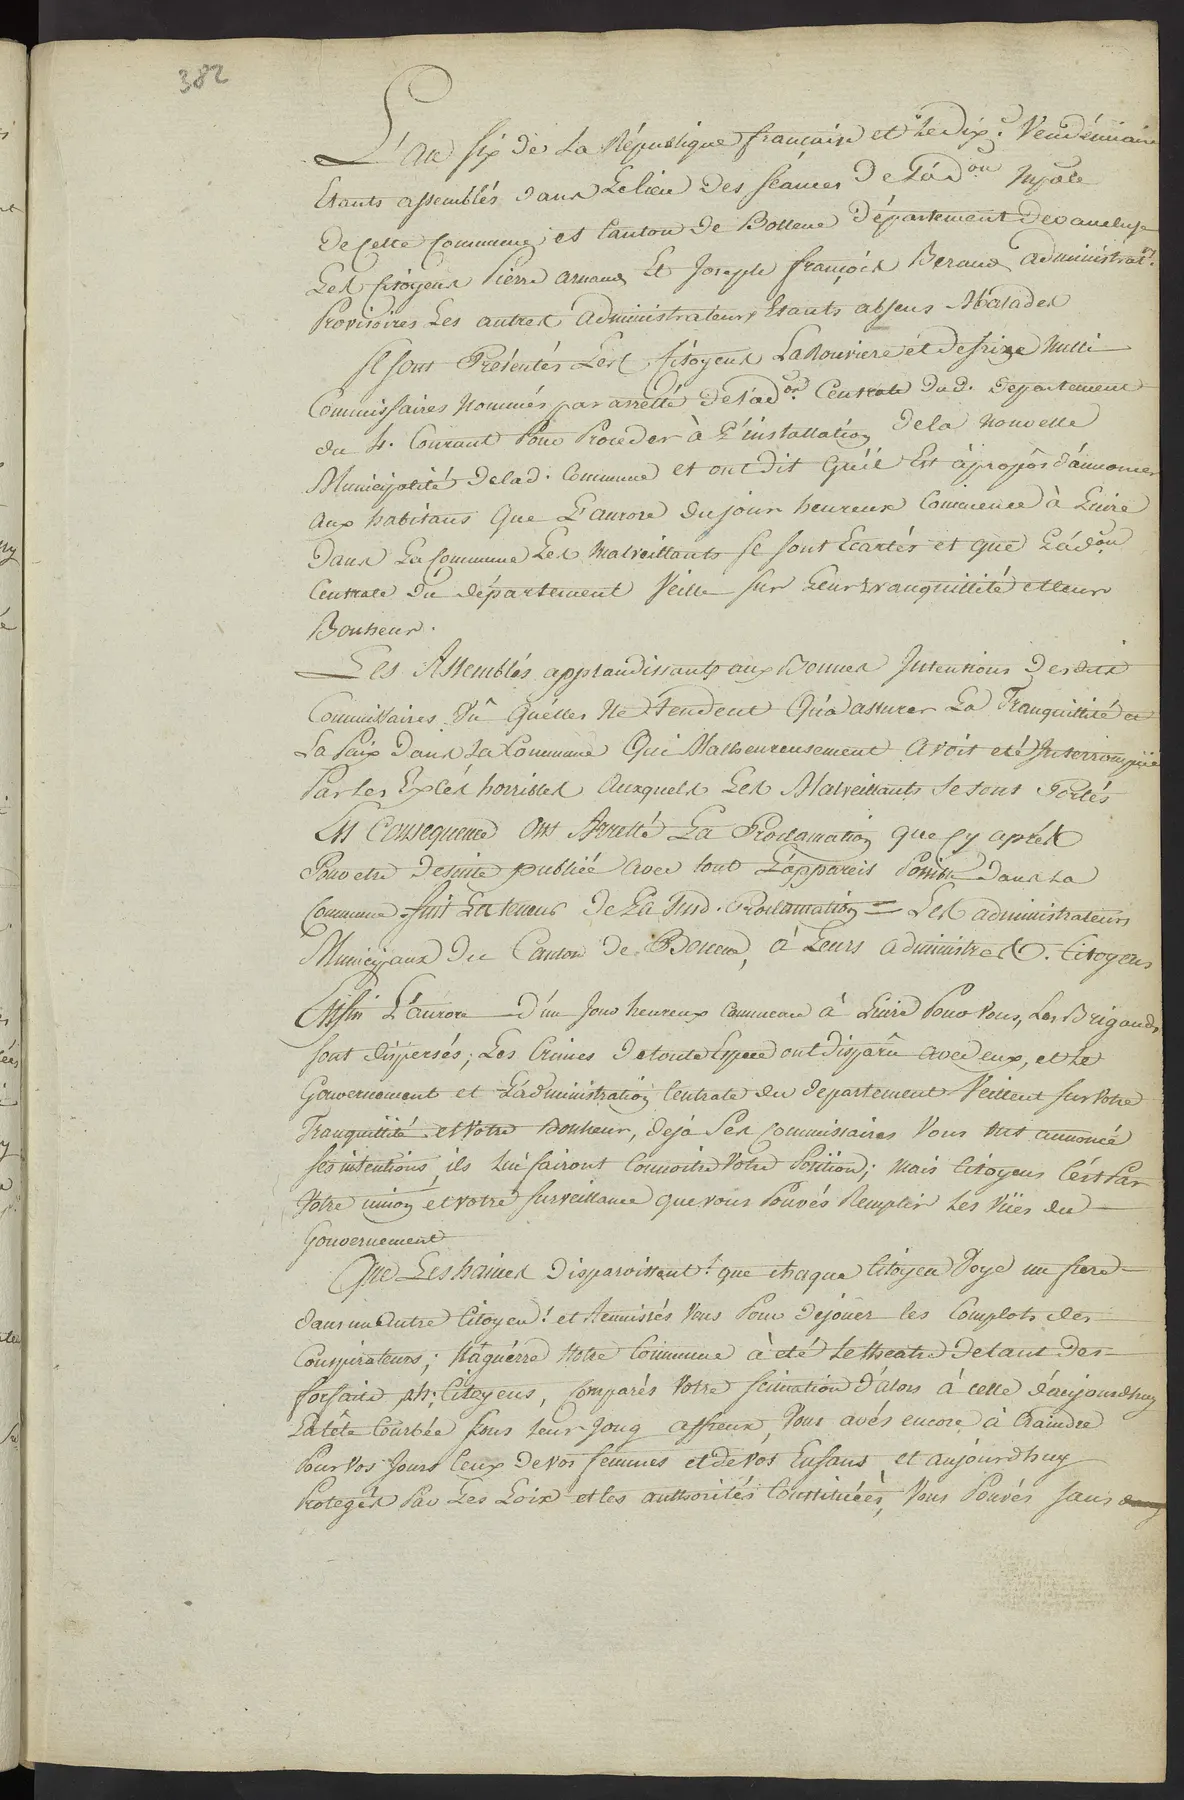 382
L'an six de la République francaise et le dix.e Vendémiaire
Etants assemblés dans Le lieu des séances de L'ad.on Mpale
de Cette Commune, et Canton de Bollene département de vaucluse
Les Citoyens Pierre arnaud Et Joseph françois Beraud administrat.rs
Provisoires Les autres administrateurs Etants absens Malades
se sont Présentés Les Citoyens Larouviere et
Commissaires Nommés par arretté de L'ad.on Centrale dud. departement
du 4. Courant Pour Proceder à L'installation de la nouvelle
Municipalité de lad. Commune et ont dit qu'il Est à propôs d'annoncer
aux habitans que L'aurore du jour heureux Commence à Luire
dans La Commune Les Malveillants se sont Ecartés et que L'ad.on
Centrale du département Veille sur Leur tranquillité et leur
Bonheur.
Les Assemblés applaudissants aux Bonnes Intentions desdits
Commissaires Vû qu'elles Ne tendent qu'a assurer La Tranquillité et
La Paix dans La Commune qui Malheureusement avoit eté Interrompüe
Par les Excés horribles auxquels Les Malveillants se sont Portés
En Consequence ont Arretté La Proclamation que Cy aprés
Pour etre de suite publiée avec tout L'appareil Possible dans La
Commune suit La teneur de La Susd. Proclamation = Les administrateurs
Municipaux du Canton de Bollene, à Leurs administrés. Citoyens
Enfin L'aurore d'un Jour heureux Commence à Luire Pour Vous, Les Brigands
sont dispersés; Les Crimes de toute Espece ont disparû avec eux, et Le
Gouvernement et L'administration Centrale du departement Veillent sur Votre
Tranquillité et Votre Bonheur, deja Ses Commissaires Vous ont annoncé
ses intentions, ils Lui fairont Connoitre Votre Position; Mais Citoyens C'est Par
Votre union et votre surveillance que vous Pouvés Remplir Les Vües du
Gouvernement
Que Les haines disparoissent! que chaque Citoyen Voye un frere
dans un Autre Citoyen! et Reunissés Vous Pour dejouer les Complots des
Conspirateurs; Naguérre Notre Commune à eté Le theatre de tant des
forfaits Ah; Citoyens, Comparés Votre Scituation d'alors à celle d'aujourdhuy
La tête Courbée sous leur Joug affreux, Vous avés encore à Craindre
Pour Vos Jours Ceux de Vos femmes et de Vos Enfans et aujourdhuy
Protegés Par Les Loix et les authorités Constituées, Vous Pouvés sans